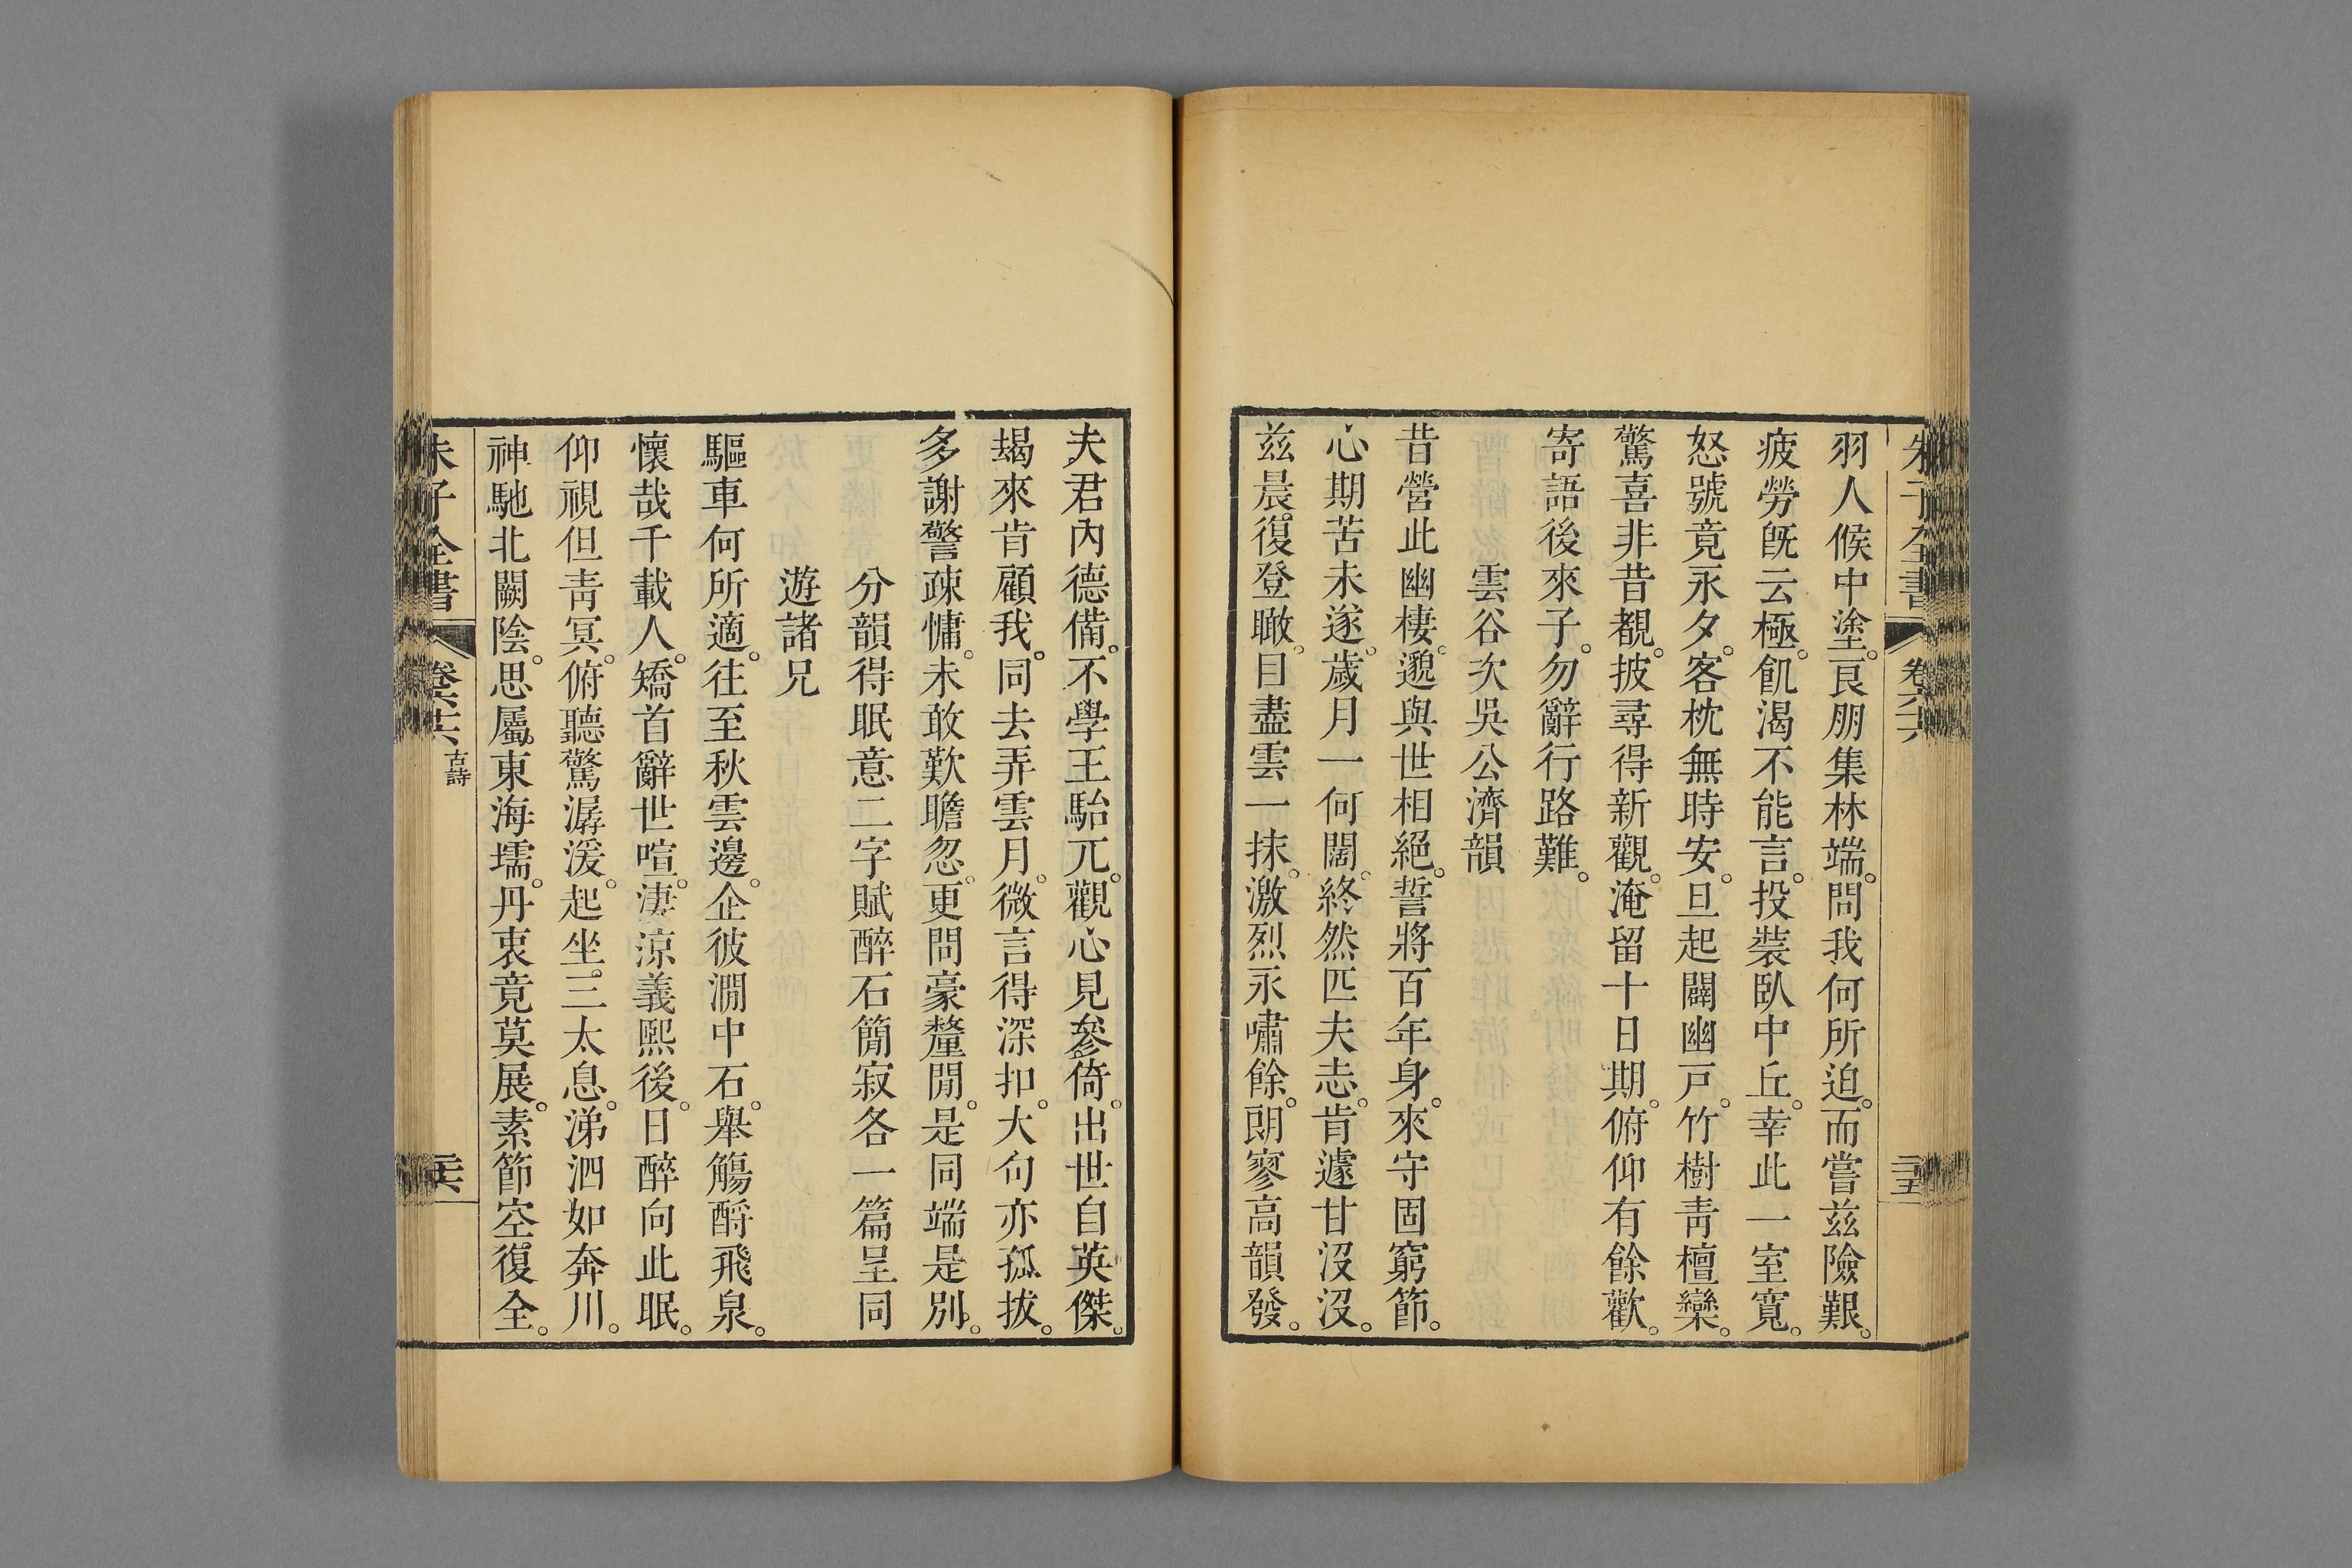 朱子全書 卷六十六 二十五
羽人候中塗。良朋集林端。問我何所迫。而嘗兹險艱。
疲勞既云極。飢渴不能言。投裝臥中丘。幸此一室寬。
怒號竟永夕。客枕無時安。旦起闢幽戸。竹樹靑檀欒。
驚喜非昔覩。披尋得新觀。淹留十日期。俯仰有餘歡。
寄語後來子。勿辭行路難。
雲谷次吳公濟韻
昔營此幽棲。邈與世相絕。誓將百年身。來守固窮節。
心期苦未遂。歲月一何闊。終然匹夫志。肯遽甘沒沒。
兹晨復登瞰。目盡雲一抹。激烈永嘯餘。朗寥高韻發。
夫君內德備。不學王駘兀。觀心見參倚。出世自英傑。
朅來肯顧我。同去弄雲月。微言得深扣。大句亦孤拔。
多謝警疎慵。未敢歎瞻忽。更問豪釐閒。是同端是別。
分韻得眠意二字賦醉石簡寂各一篇呈同
遊諸兄
驅車何所適。往至秋雲邊。企彼㵎中石。舉觴酹飛泉。
懷哉千載人。矯首辭世喧。淒涼義熙後。日醉向此眠。
仰視但靑冥。俯聽驚潺湲。起坐三太息。涕泗如奔川。
神馳北闕陰。思屬東海壖。丹衷竟莫展。素節空復全。
朱子全書 卷六十六 古詩 二十六